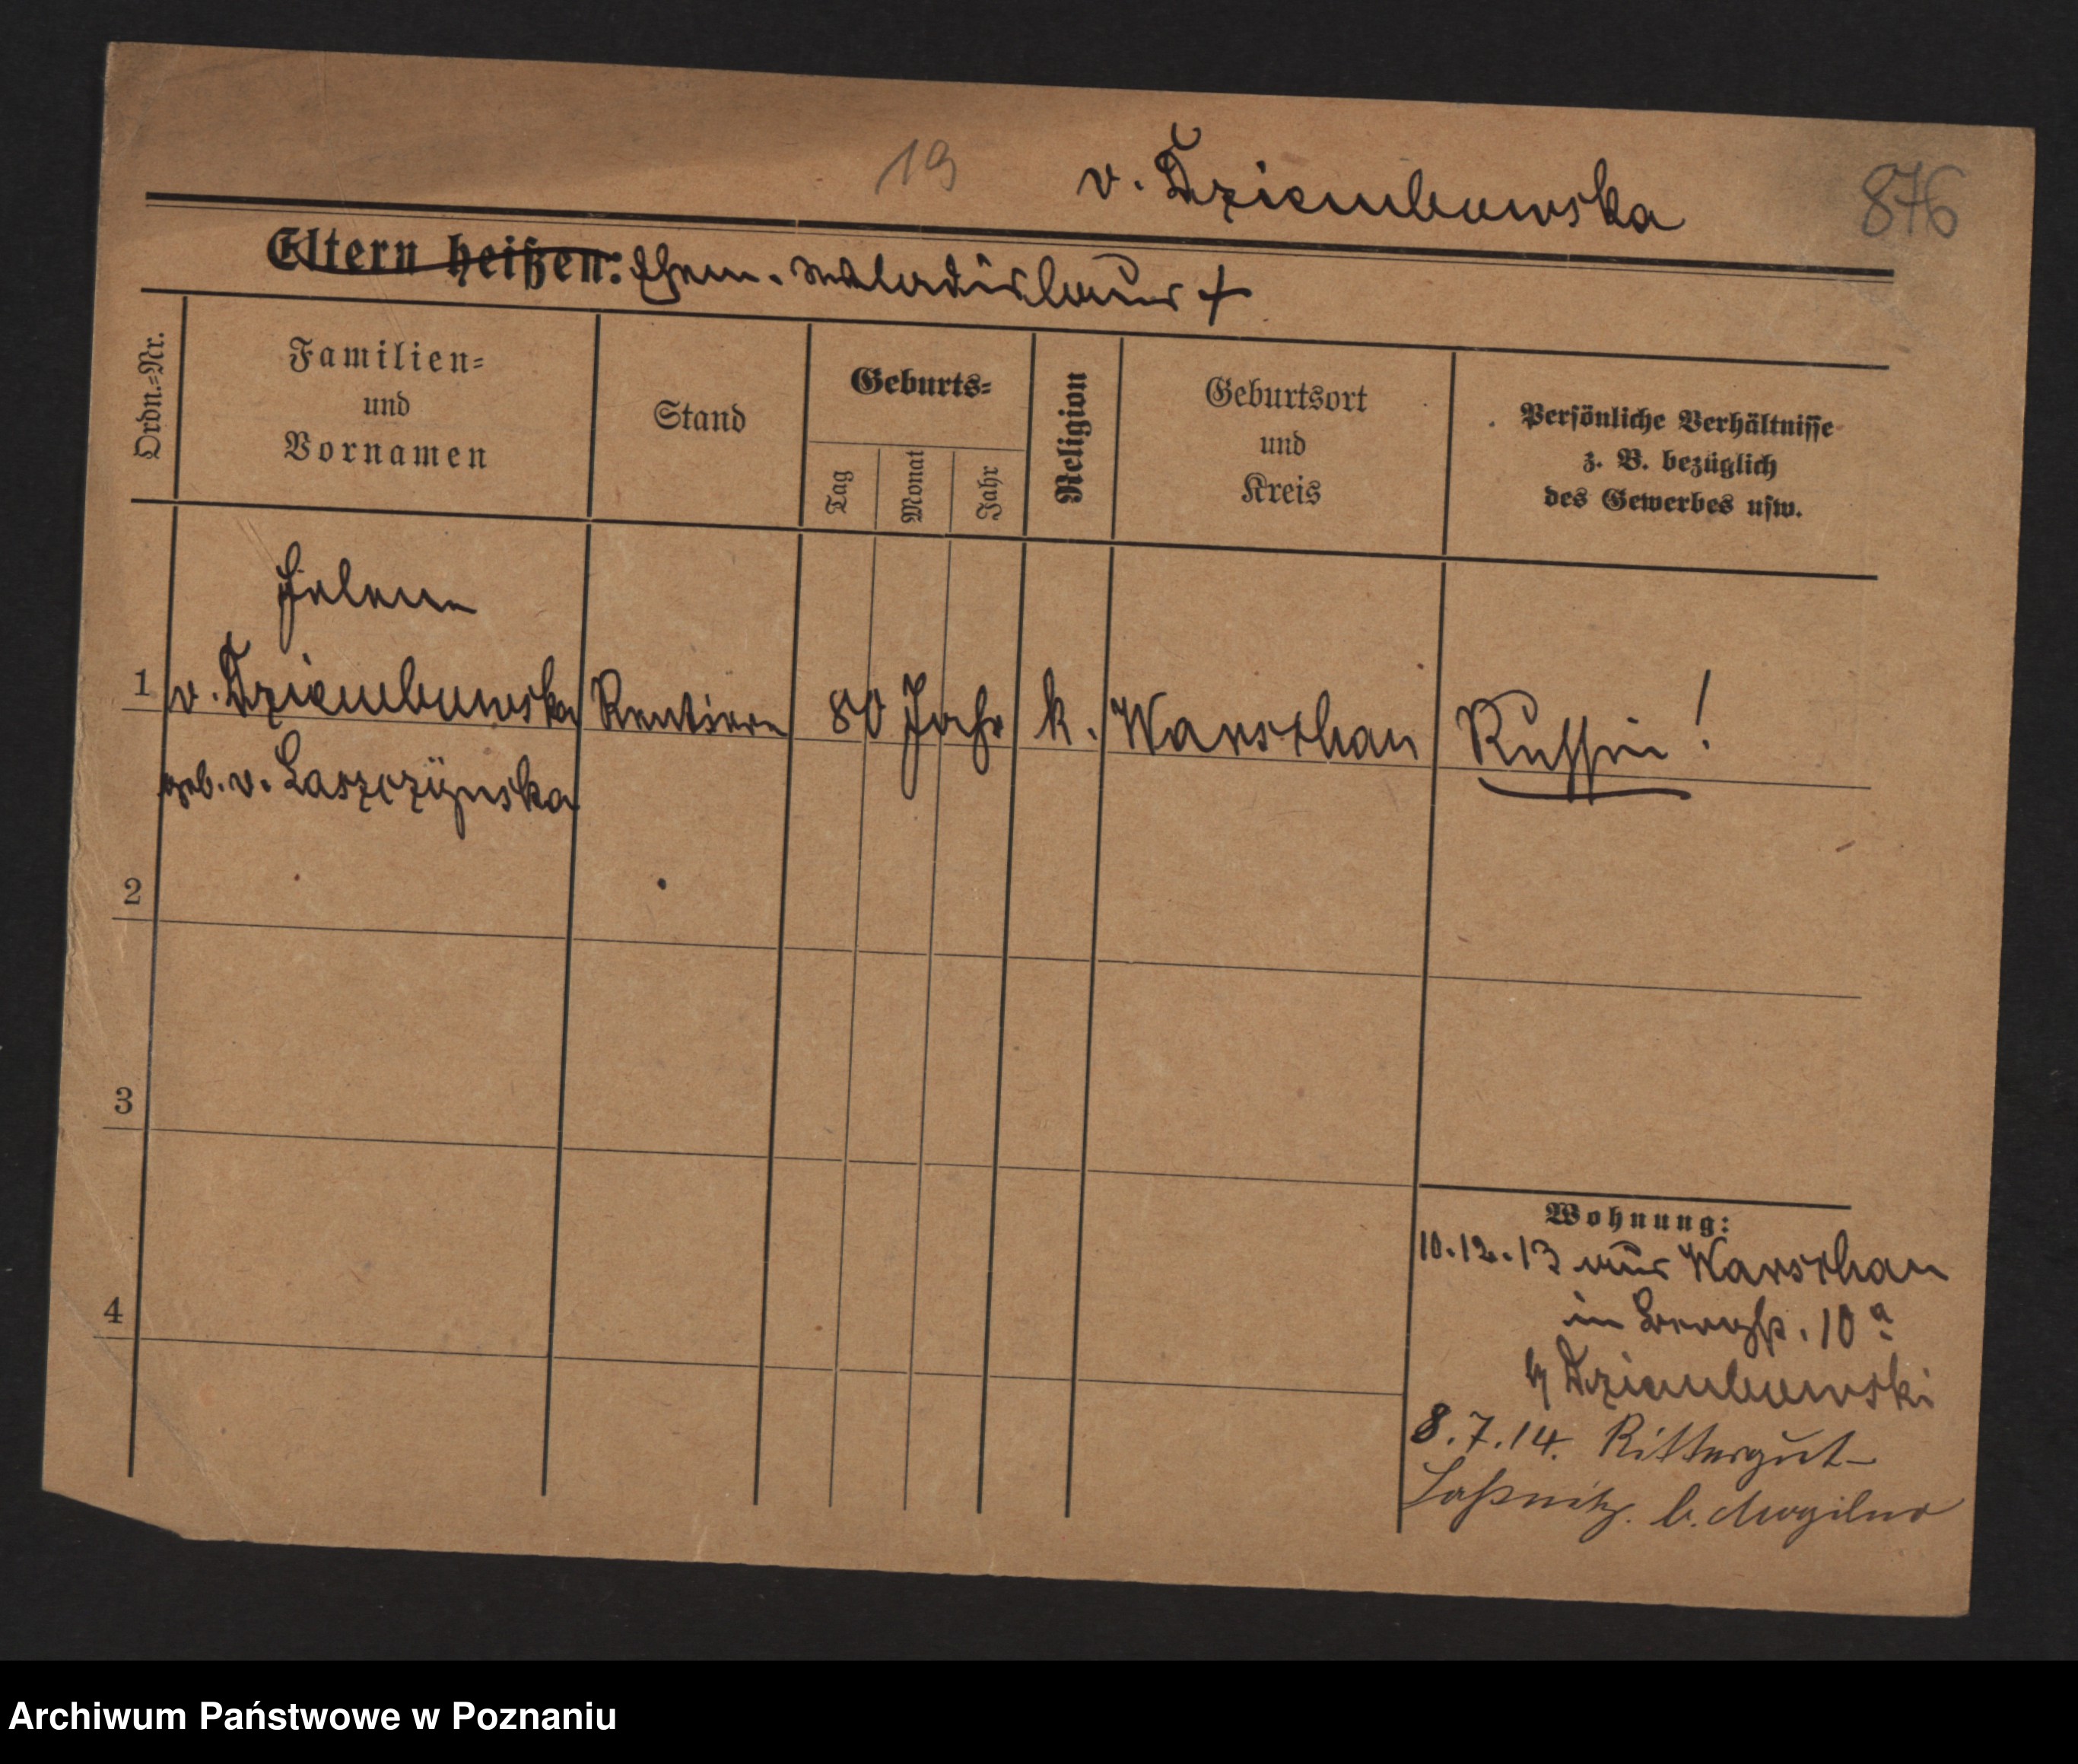 19 v. Dziembowska 876
Eltern heißen: Ehem. Wladislaus +
Ordn.=Nr.
Familien=
und
Vornamen
Stand
Geburts=
Tag
Monat
Jahr
Religion
Geburtsort
und
Kreis
Persönliche Verhältnisse
z. B. bezüglich
des Gewerbes usw.
Helene
1 v. Dziembowska Rentiere 80 Jahr k. Warschau Russin !
geb. v. Laszczÿnska
2
3
4
Wohnung:
10.12.13 aus Warschau
in 10a
Dziembowski
8.7.14. Rittergut-
b. Mogilno
Archiwum Państwowe w Poznaniu